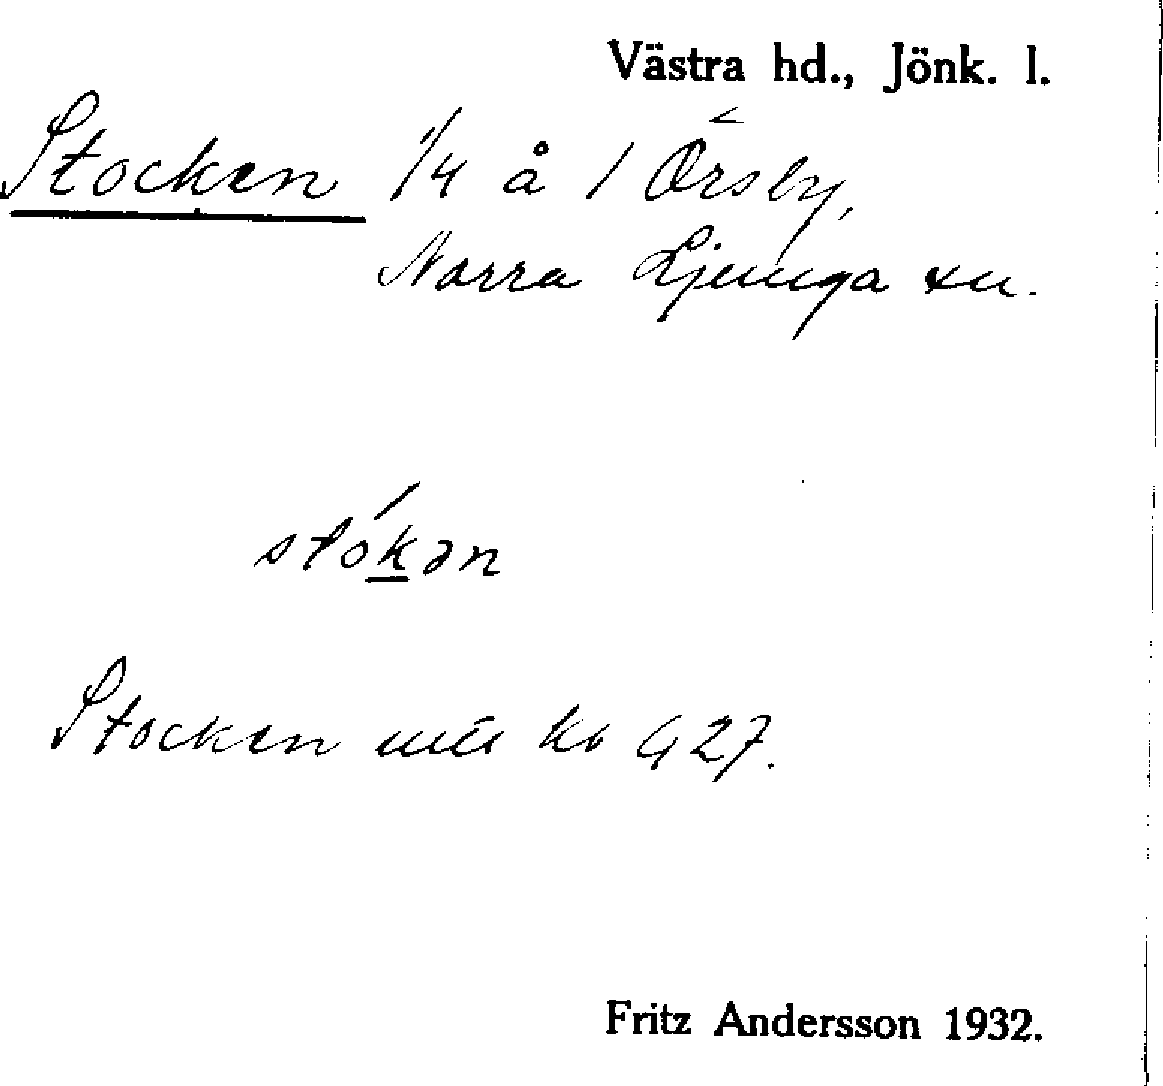 Västra hd., Jönk. l.
Stocken 1/4 å 1 Örsby,
Norra Ljunga sn.
stókən
Stocken Kb G 27.
Fritz Andersson 1932.